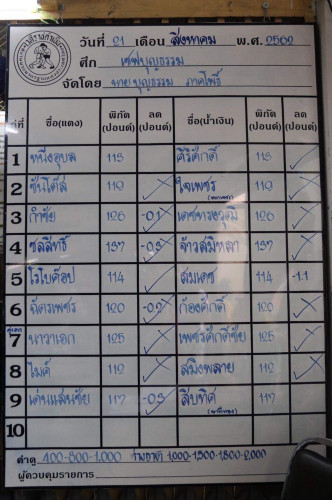 วันที่ 21 เดือน สิงหาคม พ.ศ. 2562
ศึก เชฟบุญธรรม
จัดโดย นายบุญธรรม ภาคโพธิ์
คู่ที่ ชื่อ(แดง) พิกัด (ปอนด์) ลด (ปอนด์) ชื่อ(น้ำเงิน) พิกัด (ปอนด์) ลด (ปอนด์)
1 หนึ่งอุบล 115 ศิริศักดิ์ 115
2 ซันโด้ส 119 ใจเพชร 119
3 กำชัย 126 -0.1 เดชทรงวุฒิ 126
4 ชลสิทธิ์ 137 -0.3 จ้าวสมิหลา 137
5 โรโบค็อป 114 สมเดช 114 -1.1
6 ฉัตรเพชร 120 -0.2 ก้องศักดิ์ 120
คู่เอก
7 นาวาเอก 125 เพชรศักดิ์ชัย 125
8 ไมค์ 112 สมิงพลาย 112
9 เด่นแสนชัย 117 -0.3 สืบทิศ 117
10
ค่าดู 400-800-1,000 ต่างชาติ 1,000-1,500-1,800-2,000
ผู้ควบคุมรายการ